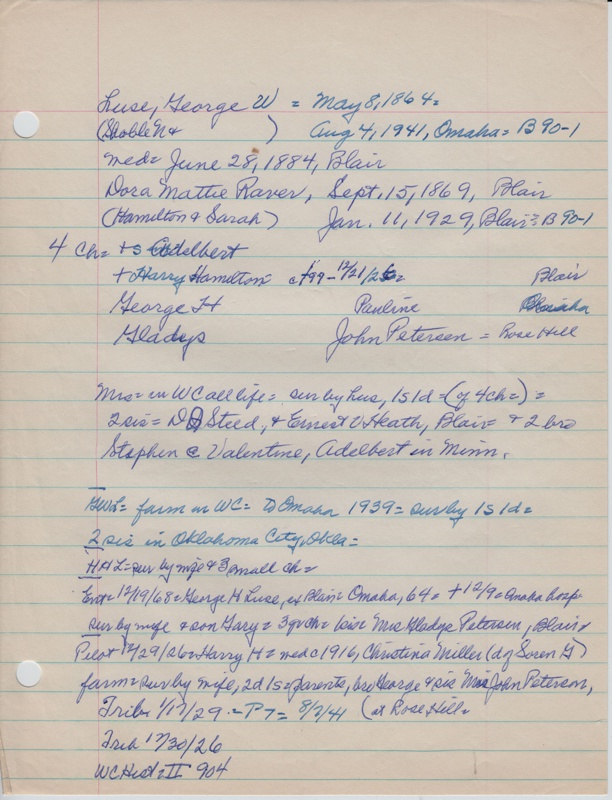 Luse, George W = May 8, 1864=
(Noble N & ) Aug 4, 1941, Omaha= B 90-1
med= June 28, 1884, Blair
Dora Mattie Raver, Sept. 15, 1869, Blair
(Hamilton & Sarah) Jan. 11, 1929, Blair= B 90-1
4 ch= +s Adelbert
+ Harry Hamilton c 1/99 - 12/21/26= Blair
George H Pauline Omaha
Gladys John Petersen = Rose Hill
Mrs= in WC all life= sur by hus, 1s 1d= (of 4 ch=) =
2 sis= D Steed, & Ernest V Heath, Blair= & 2 bro
Stephen & Valentine, Adelbert in Minn.
GWL= farm in WC= to Omaha 1939= sur by 1s 1d=
2 sis in Oklahoma City, Okla=
HHL= sur by wife & 3 small ch=
Ent= 12/19/68= George H Luse, ex Blair= Omaha, 64= + 12/9= Omaha hosp=
sur by wife & son Gary= 3 grch= 1 sis= Mrs Gladys Petersen, Blair=
Pilot 12/29/26= Harry H= med c 1916, Christina Miller (d of Soren G)
farm= sur by wife, 2d 1s= parents, bro George & sis Mrs John Petersen,
Trib= 1/17/29 - P T= 8/7/41 (at Rose Hill=
Trib 12/30/26
WC Hist= II 904